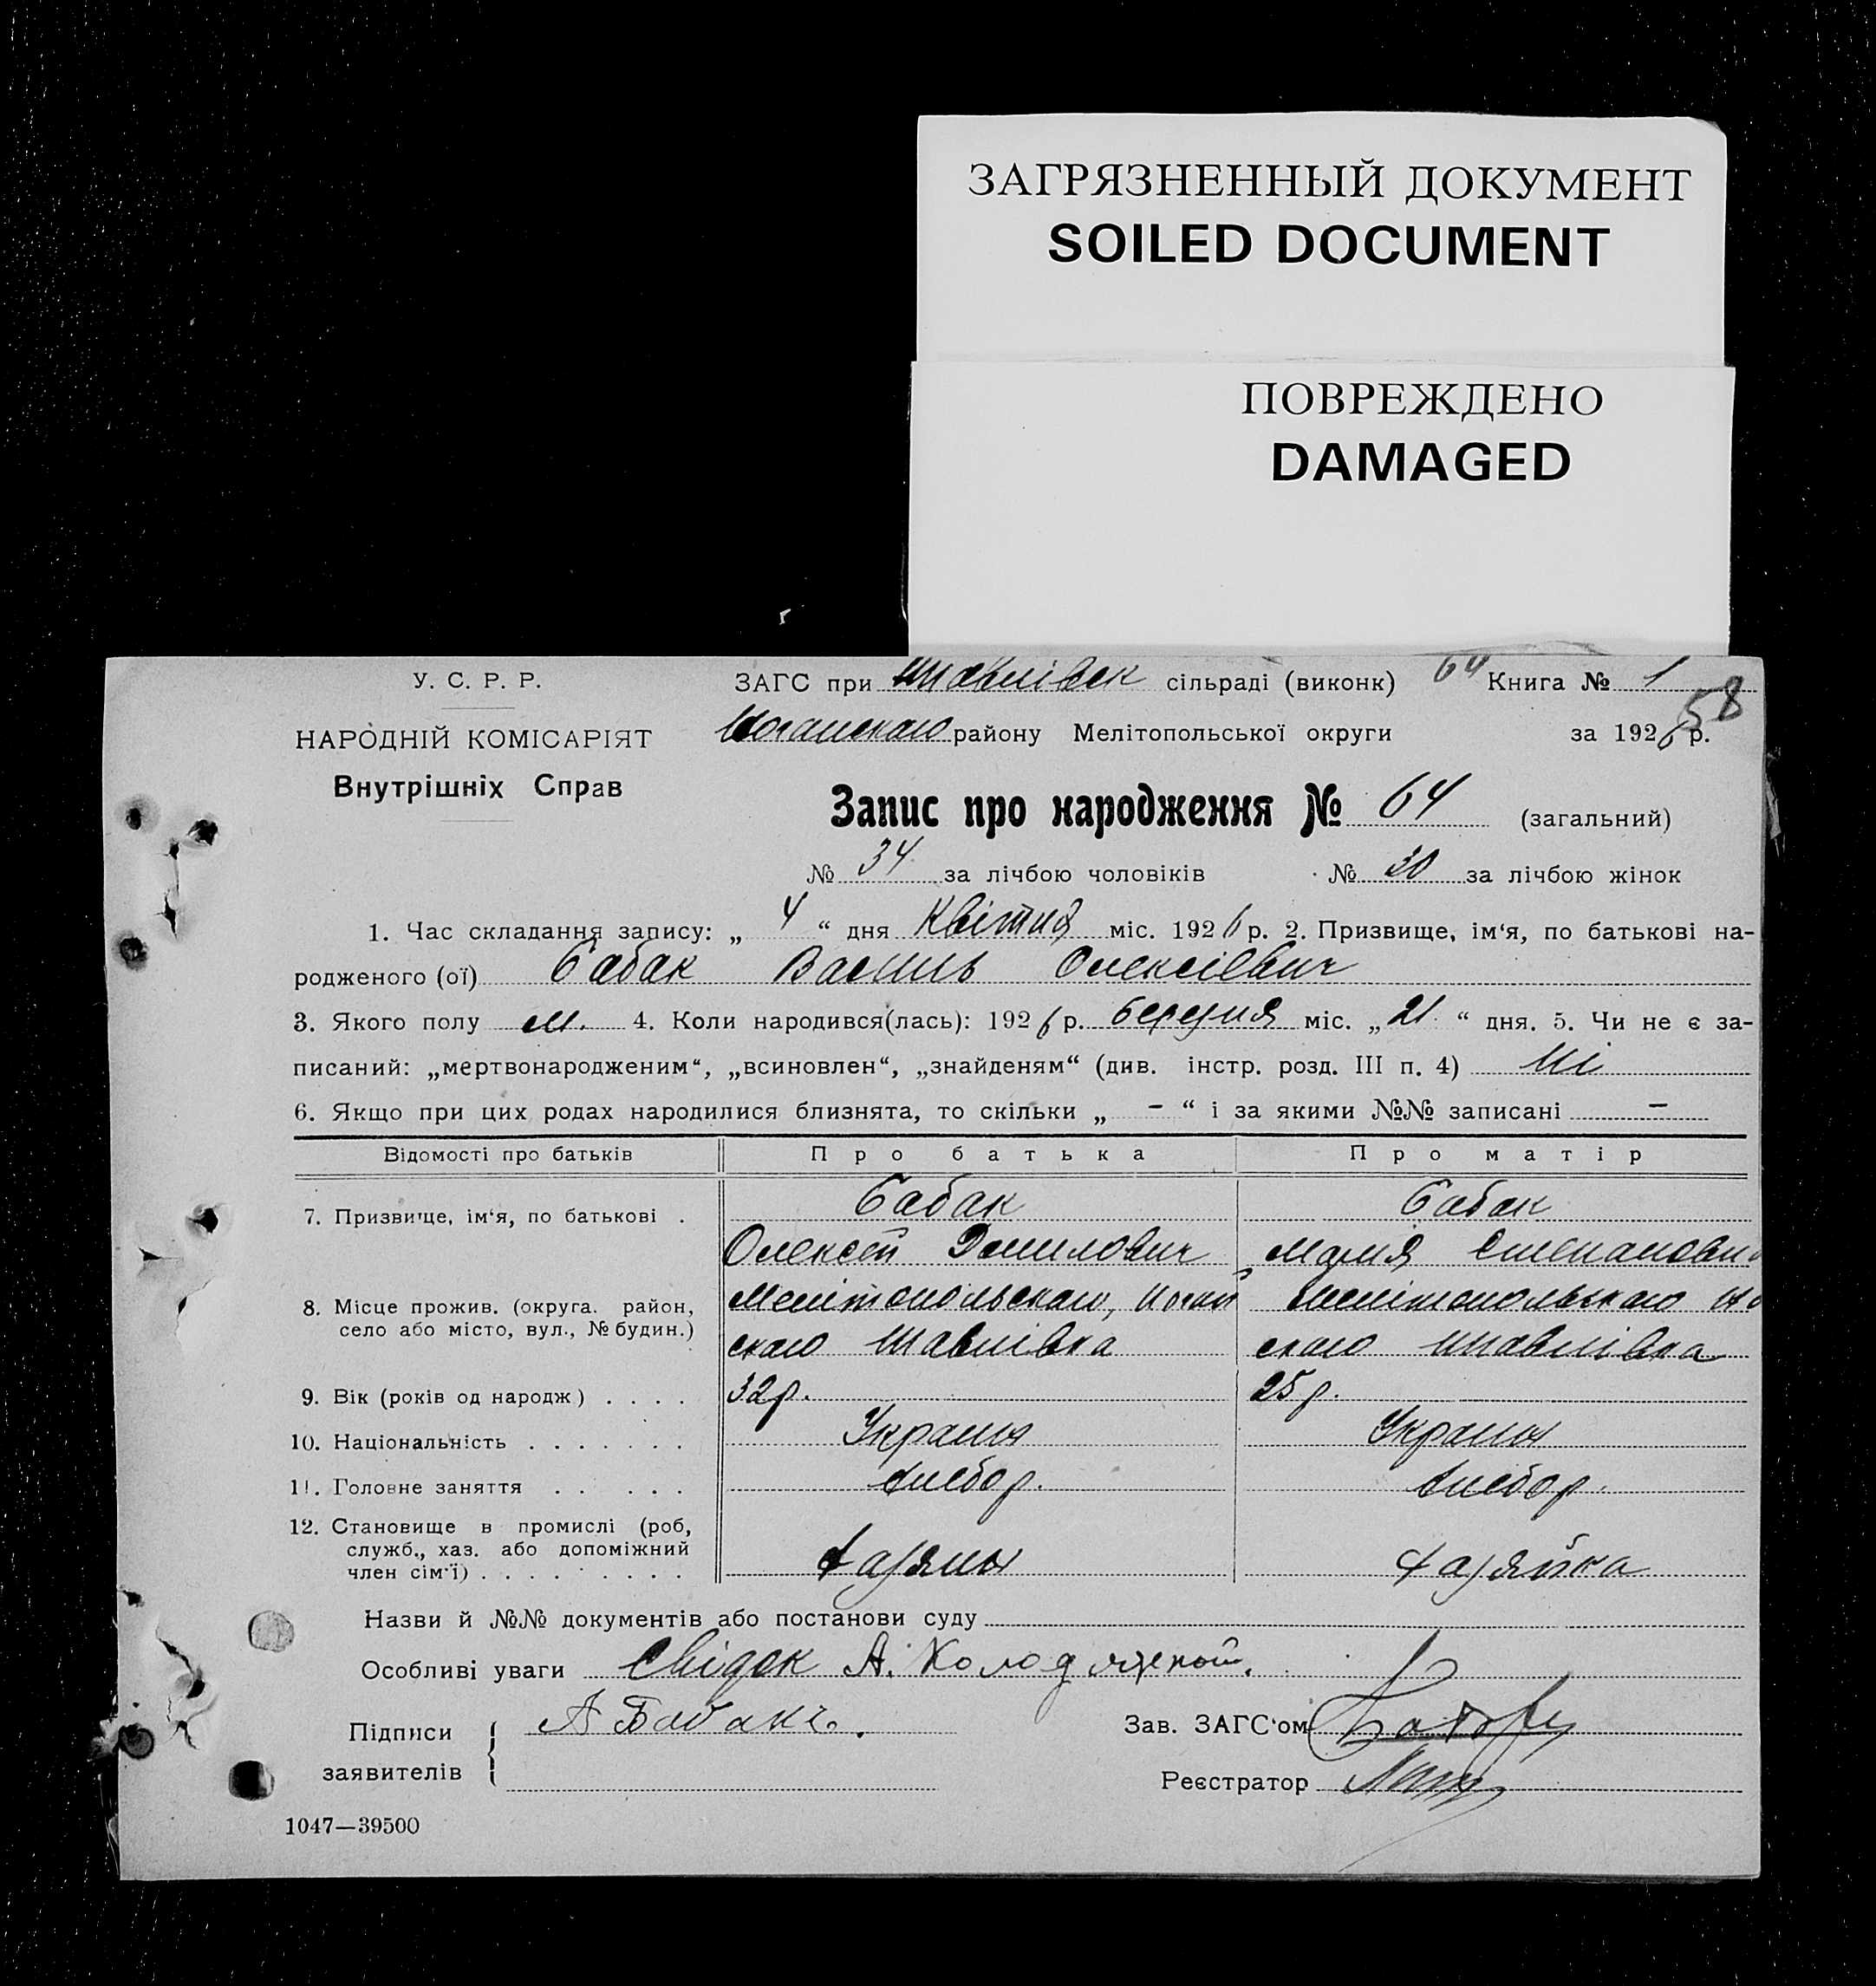 ЗАГРЯЗНЕННЫЙ ДОКУМЕНТ
SOILED DOCUMENT
ПОВРЕЖДЕНО
DAMAGED
У. С. Р. Р.
НАРОДНІЙ КОМІСАРІЯТ
Внутрішніх Справ
ЗАГС при сільраді (виконк) 64 Книга № 1
58
району Мелітопольської округи за 1926 р.
Запис про народження № 64 (загальний)
№ 34 за лічбою чоловіків № 30 за лічбою жінок
1. Час складання запису: „ 4 “ дня Квітня міс. 1926 р. 2. Призвище, ім‘я, по батькові на-
родженого (ої) Бабак Василь Олексіевич
3. Якого полу м. 4. Коли народився(лась): 1926 р. березня міс. „ 21 “ дня. 5. Чи не є за-
писаний: „мертвонародженим“, „всиновлен“, „знайденям“ (див. інстр. розд. III п. 4) Ні
6. Якщо при цих родах народилися близнята, то скільки „ - “ і за якими №№ записані -
Відомості про батьків Про батька Про матір
7. Призвище, ім‘я, по батькові . Бабак Бабак
Олексей Данилович Мария
8. Місце прожив. (округа. район, село або місто, вул., № будин.) Мелітопольскаго, Ногай Мелітопольскаго Но
скаго Шавлівка скаго Шавлівка
9. Вік (років од народж) . . . . 32 р. 25 р.
10. Національність . . . . . . . Украин Украин
11. Головне заняття . . . . . Хлебор. Хлебор.
12. Становище в промислі (роб, служб., хаз. або допоміжний член сім‘ї) . . . . . . . . . Хазяин Хазяйка
Назви й №№ документів або постанови суду
Особливі уваги Свідок А. Колодяжной.
Підписи заявителів { А Бабакъ.
Зав. ЗАГС‘ом
Реєстратор
1047—39500